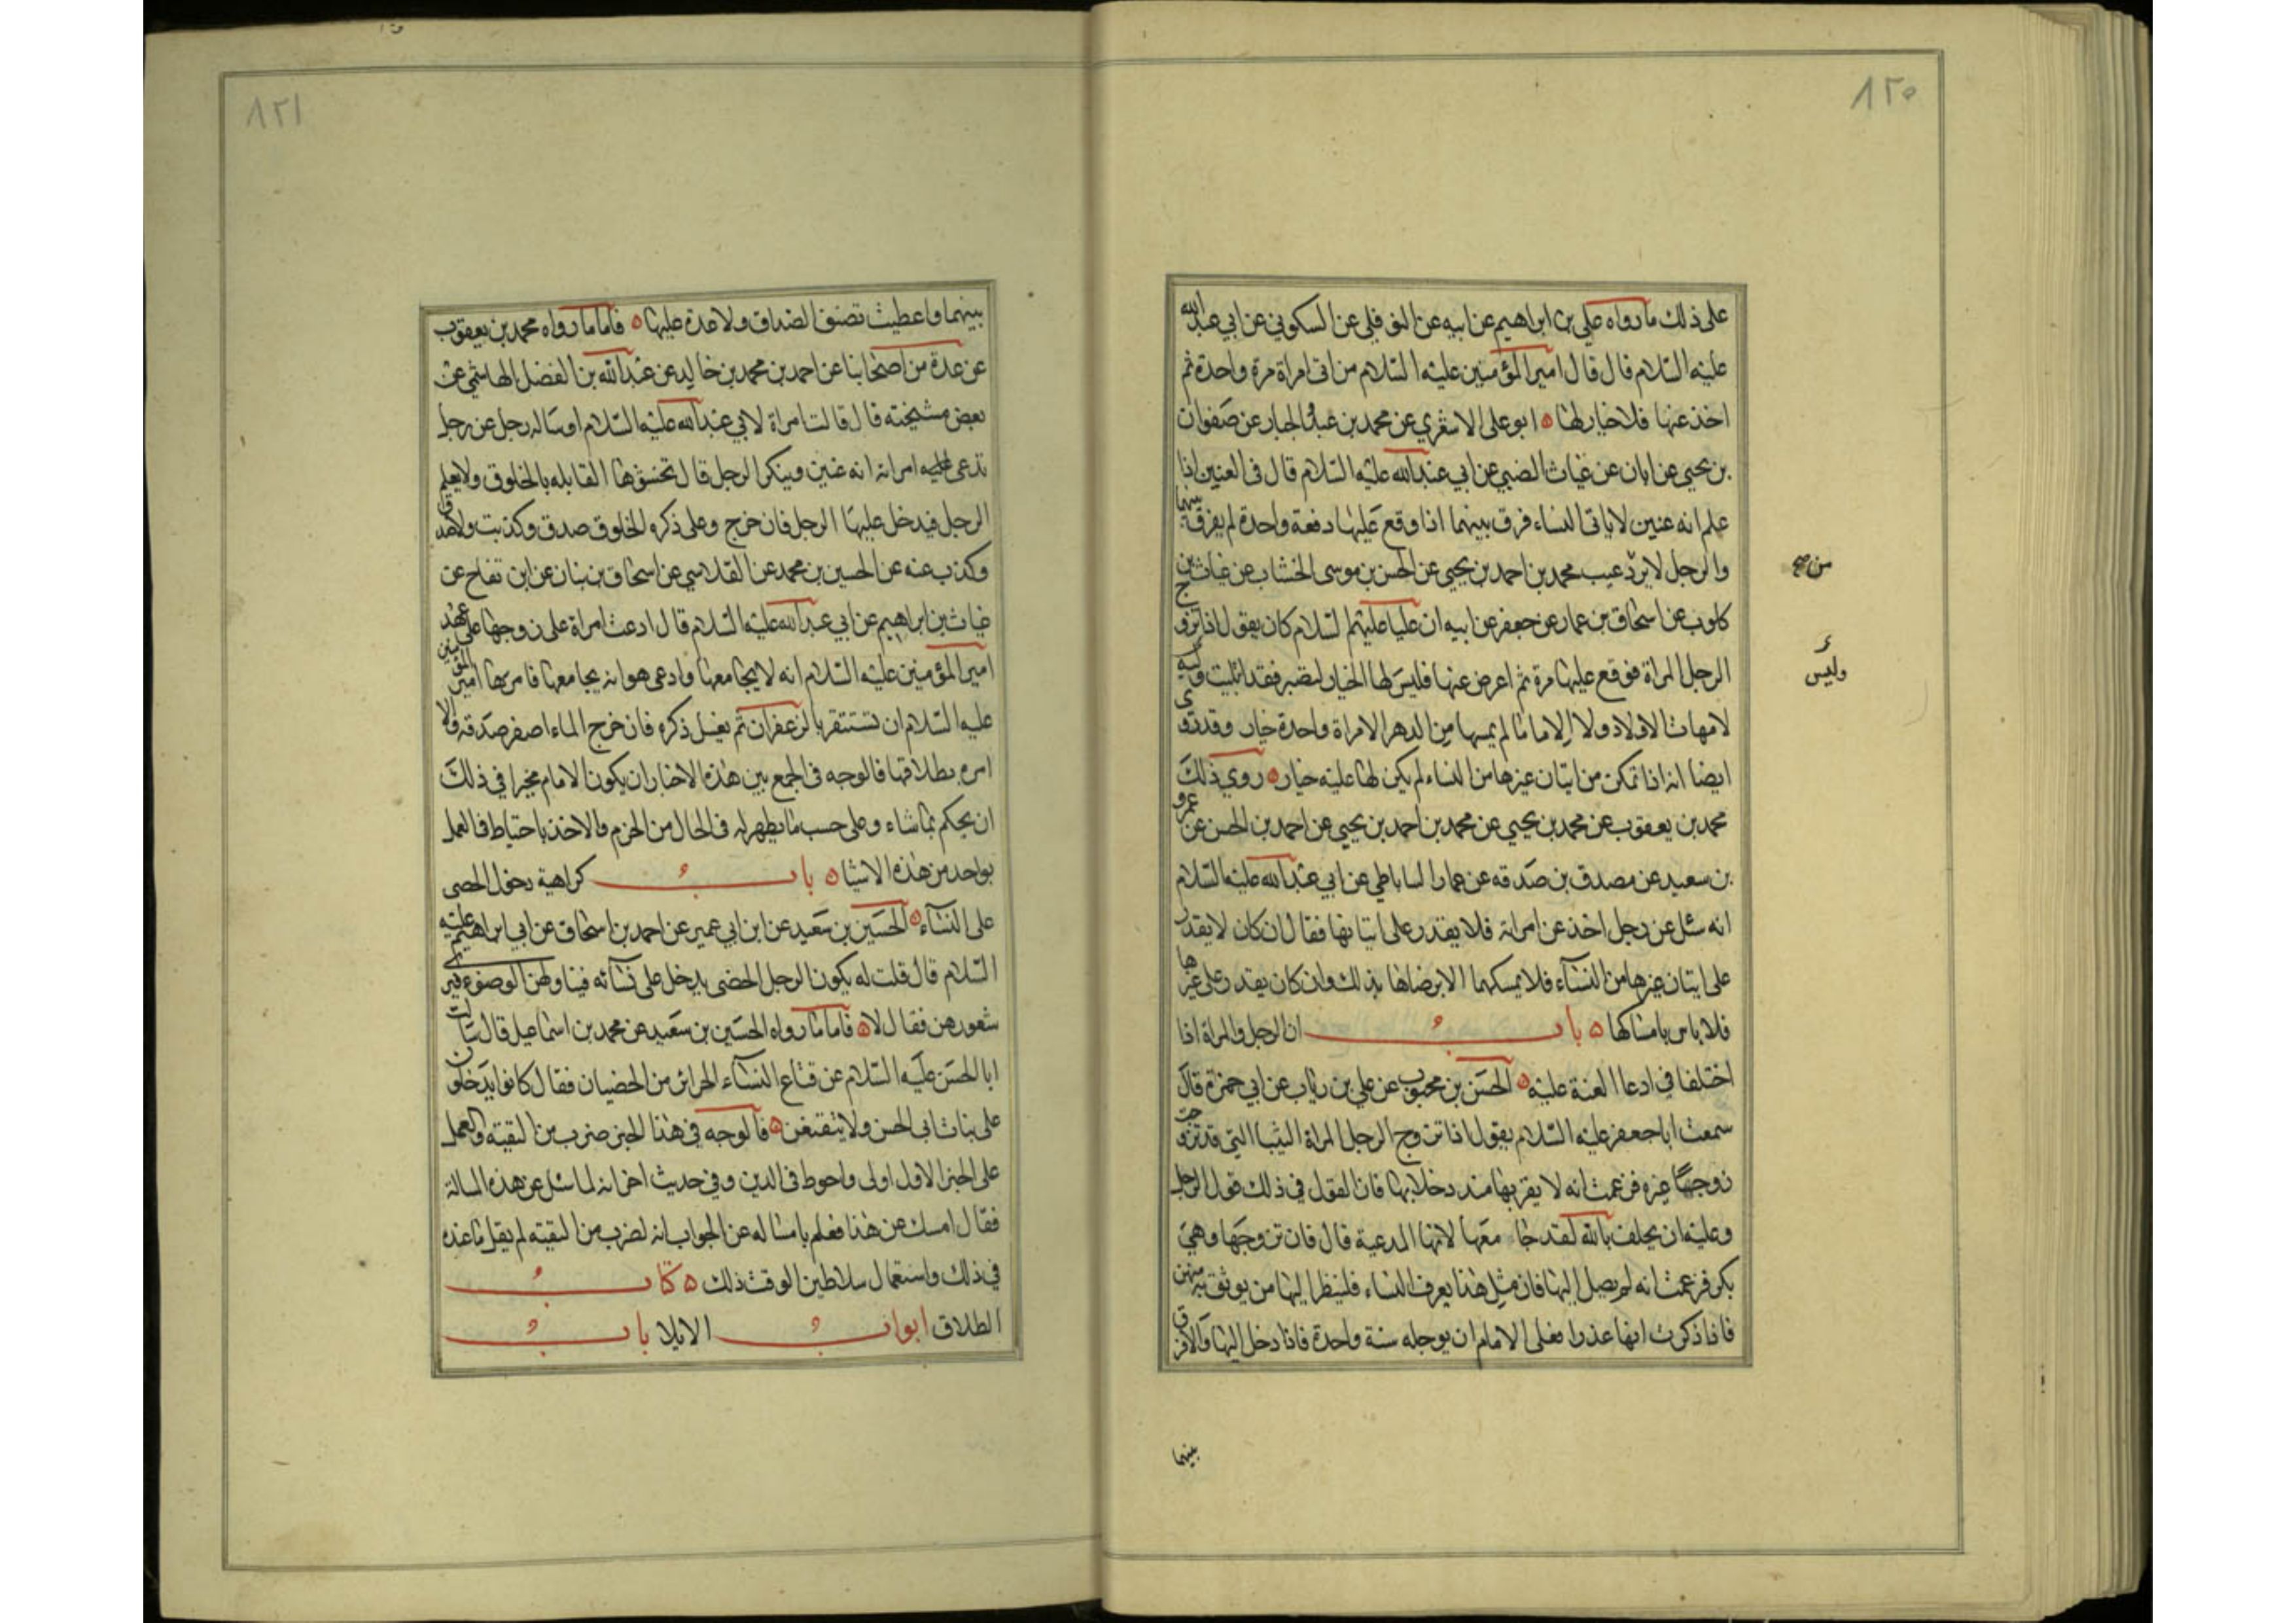 ٨٢٠
على ذلك ما رواه علي بن ابراهيم عن ابيه عن النوفلي عن السكوني عن ابي عبدالله
عليه السلام قال قال امير المؤمنين عليه السلام من اتى امراة مرة واحدة ثم
اخذ عنها فلا خيار لها ابو علي الاشعري عن محمد بن عبد الجبار عن صفوان
بن يحيى عن ابان عن غياث الضبي عن ابي عبد الله عليه السلام قال في العنين اذا
علم انه عنين لا ياتي النساء فرق بينهما اذا وقع عليها دفعة واحدة لم يفرق بينهما
والرجل لا يرد عيب محمد بن احمد بن يحيى عن الحسن بن موسى الخشاب عن غياث بن
من صح
كلوب عن اسحاق بن عمار عن جعفر عن ابيه ان عليا عليهم السلام كان يقول اذا تزوج
الرجل المراة فوقع عليها مرة ثم اعرض عنها فليس لها الخيار لتصبر فقد ابتليت وليس
وليس
لامهات الاولاد ولا الاماء ما لم يمسها من الدهر الا مرة واحدة خيار وقد روى
ايضا انه اذا تمكن من اتيان غيرها من النساء لم يكن لها عليه خيار روى ذلك
محمد بن يعقوب عن محمد بن يحيى عن محمد بن احمد بن يحيى عن احمد بن الحسن عن عمرو
بن سعيد عن مصدق بن صدقه عن عمار الساباطي عن ابي عبد الله عليه السلام
انه سئل عن رجل اخذ عن امراته فلا يقدر على اتيانها فقال ان كان لا يقدر
على اتيان غيرها من النساء فلا يمسكها الا برضاها بذلك وان كان يقدر على غيرها
فلا باس بامساكها باب ان الرجل والمراة اذا
اختلفا في ادعا العنة عليه الحسن بن محبوب عن علي بن رئاب عن ابي حمزة قال
سمعت ابا جعفر عليه السلام يقول اذا تزوج الرجل المراة الثيب التي قد تزوجت
زوجها غيره فزعمت انه لا يقربها منذ دخل بها فان القول في ذلك قول الرجل
وعليه ان يحلف بالله لقد جا معها لانها المدعية قال فان تزوجها وهي
بكر فزعمت انه لم يصل اليها فان مثل هذا يعرف النساء فلينظر اليها من يوثق به منهن
فاذا ذكرت انها عذراء فعلى الامام ان يوجله سنة واحدة فاذا دخل اليها والا فرق
بينهما
٨٢١
بينهما واعطيت نصف الصداق ولا عدة عليها فاما ما رواه محمد بن يعقوب
عن عدة من اصحابنا عن احمد بن محمد بن خالد عن عبد الله بن الفضل الهاشمي عن
بعض مشيخته قال قالت امراة لابي عبد الله عليه السلام او ساله رجل عن رجل
تدعي عليه امراته انه عنين وينكر الرجل قال تحشوها القابله بالخلوق ولا يعلم
الرجل فيدخل عليها الرجل فان خرج وعلى ذكره الخلوق صدق وكذبت والا صدقت
وكذب عنه عن الحسين بن محمد عن القلانسي عن اسحاق بن بنان عن ابن بقاح عن
غياث بن ابراهيم عن ابي عبد الله عليه السلام قال ادعت امراة على زوجها على عهد
امير المؤمنين عليه السلام انه لا يجامعها وادعى هو انه يجامعها فامرها امير المؤمنين
عليه السلام ان تستثفر بالزعفران ثم يغسل ذكره فان خرج الماء اصفر صدقه والا
امره بطلاقها فالوجه في الجمع بين هذه الاخبار ان يكون الامام مخيرا في ذلك
ان يحكم بما شاء وعلى حسب ما يظهر له في الحال من الحزم والاخذ باحتياط فالعمل
بواحد من هذه الاشيا باب كراهية دخول الخصي
على النسآء الحسين بن سعيد عن ابن ابي عمير عن احمد بن اسحاق عن ابي ابراهيم عليه
السلام قال قلت له يكون الرجل الخصي يدخل على نسآئه فيناولهن الوضوء فيرى
شعورهن فقال لا فاما ما رواه الحسين بن سعيد عن محمد بن اسماعيل قال سالت
ابا الحسن عليه السلام عن قناع النسآء الحرائر من الخصيان فقال كانوا يدخلون
على بنات ابي الحسن ولا يتقنعن فالوجه في هذا الخبر ضرب من التقية والعمل
على الخبر الاول اولى واحوط في الدين وفي حديث اخر انه لما سئل عن هذه المسالة
فقال امسك عن هذا فعلم بامساكه عن الجواب انه لضرب من التقيه لم يقل ما عنده
في ذلك واستعمال سلاطين الوقت ذلك كتاب
الطلاق ابواب الايلا باب